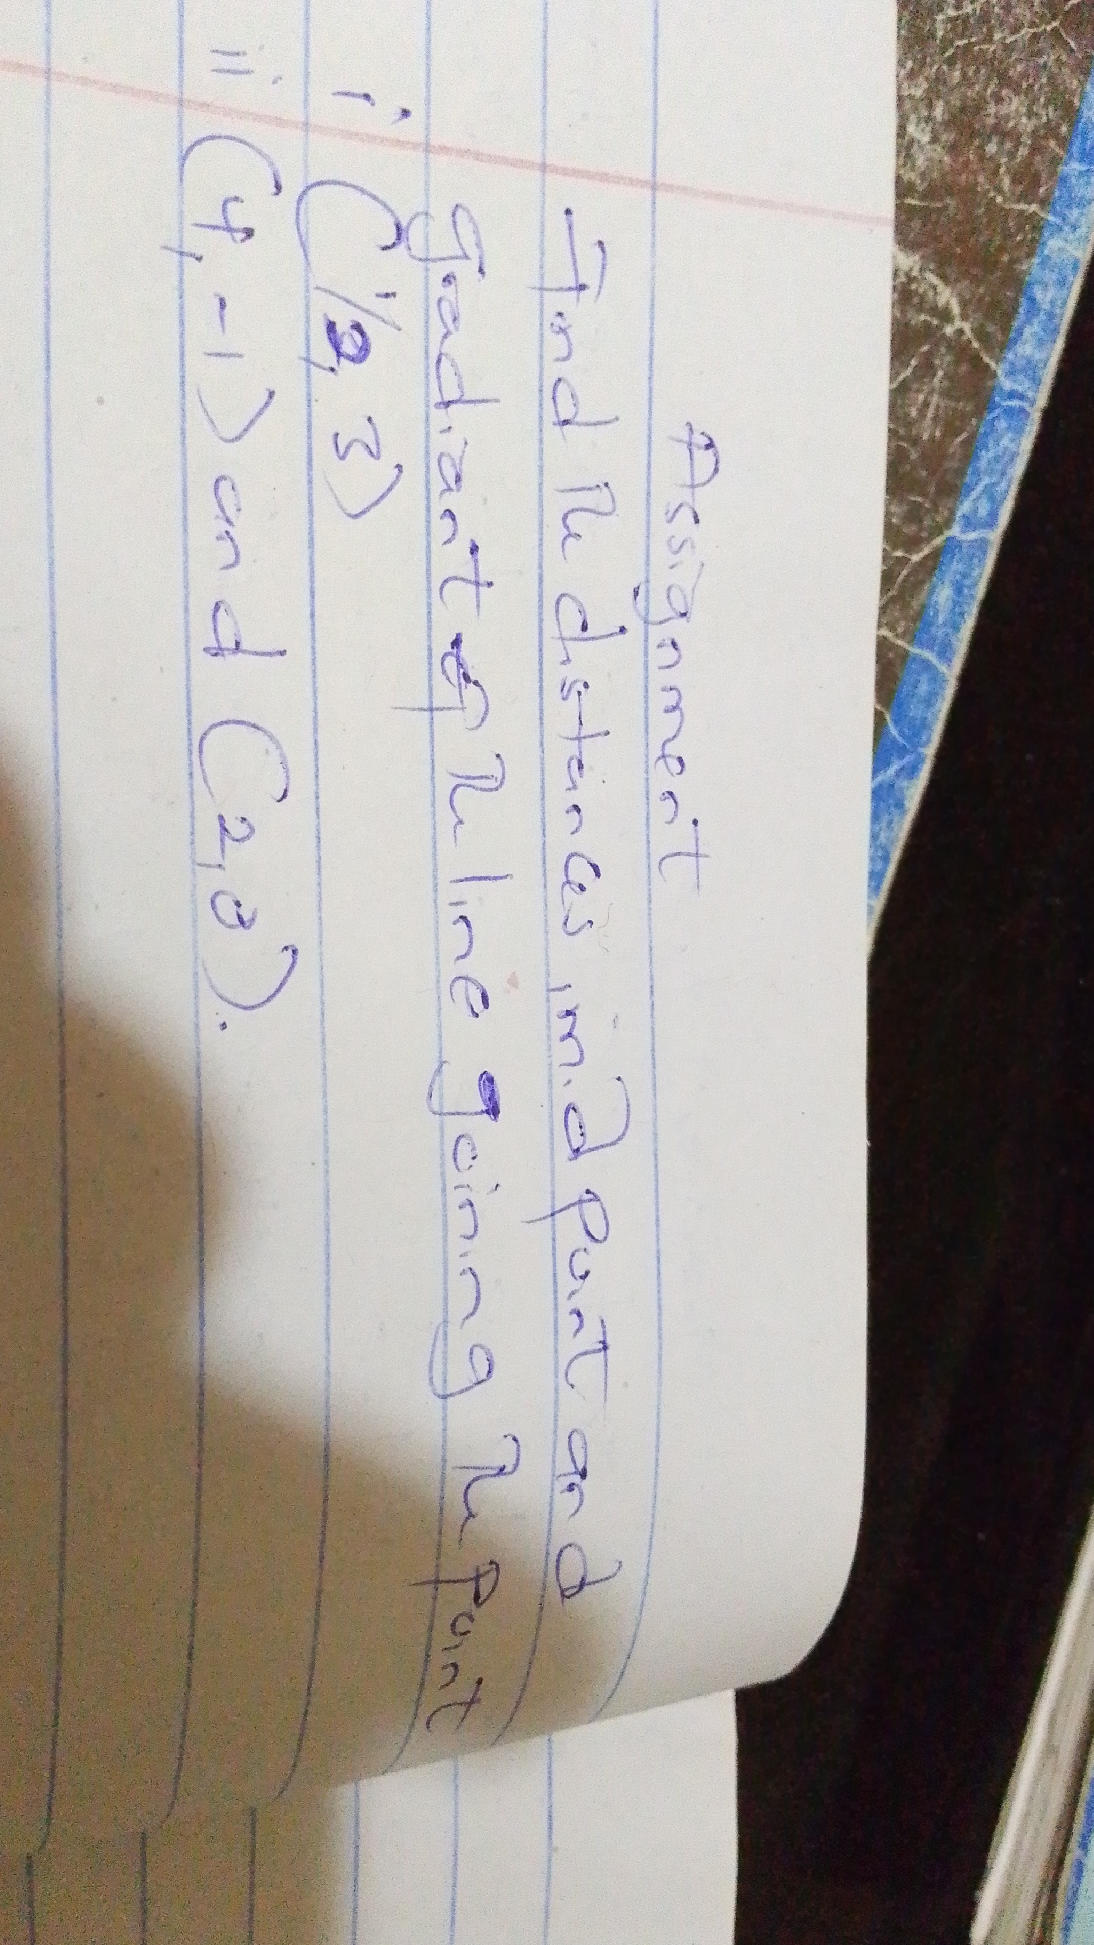 Assignment
Find the distances mid point and
gradiant of the line goining the point
i. (1/2, 3)
ii. (4, -1) and (2, 0).